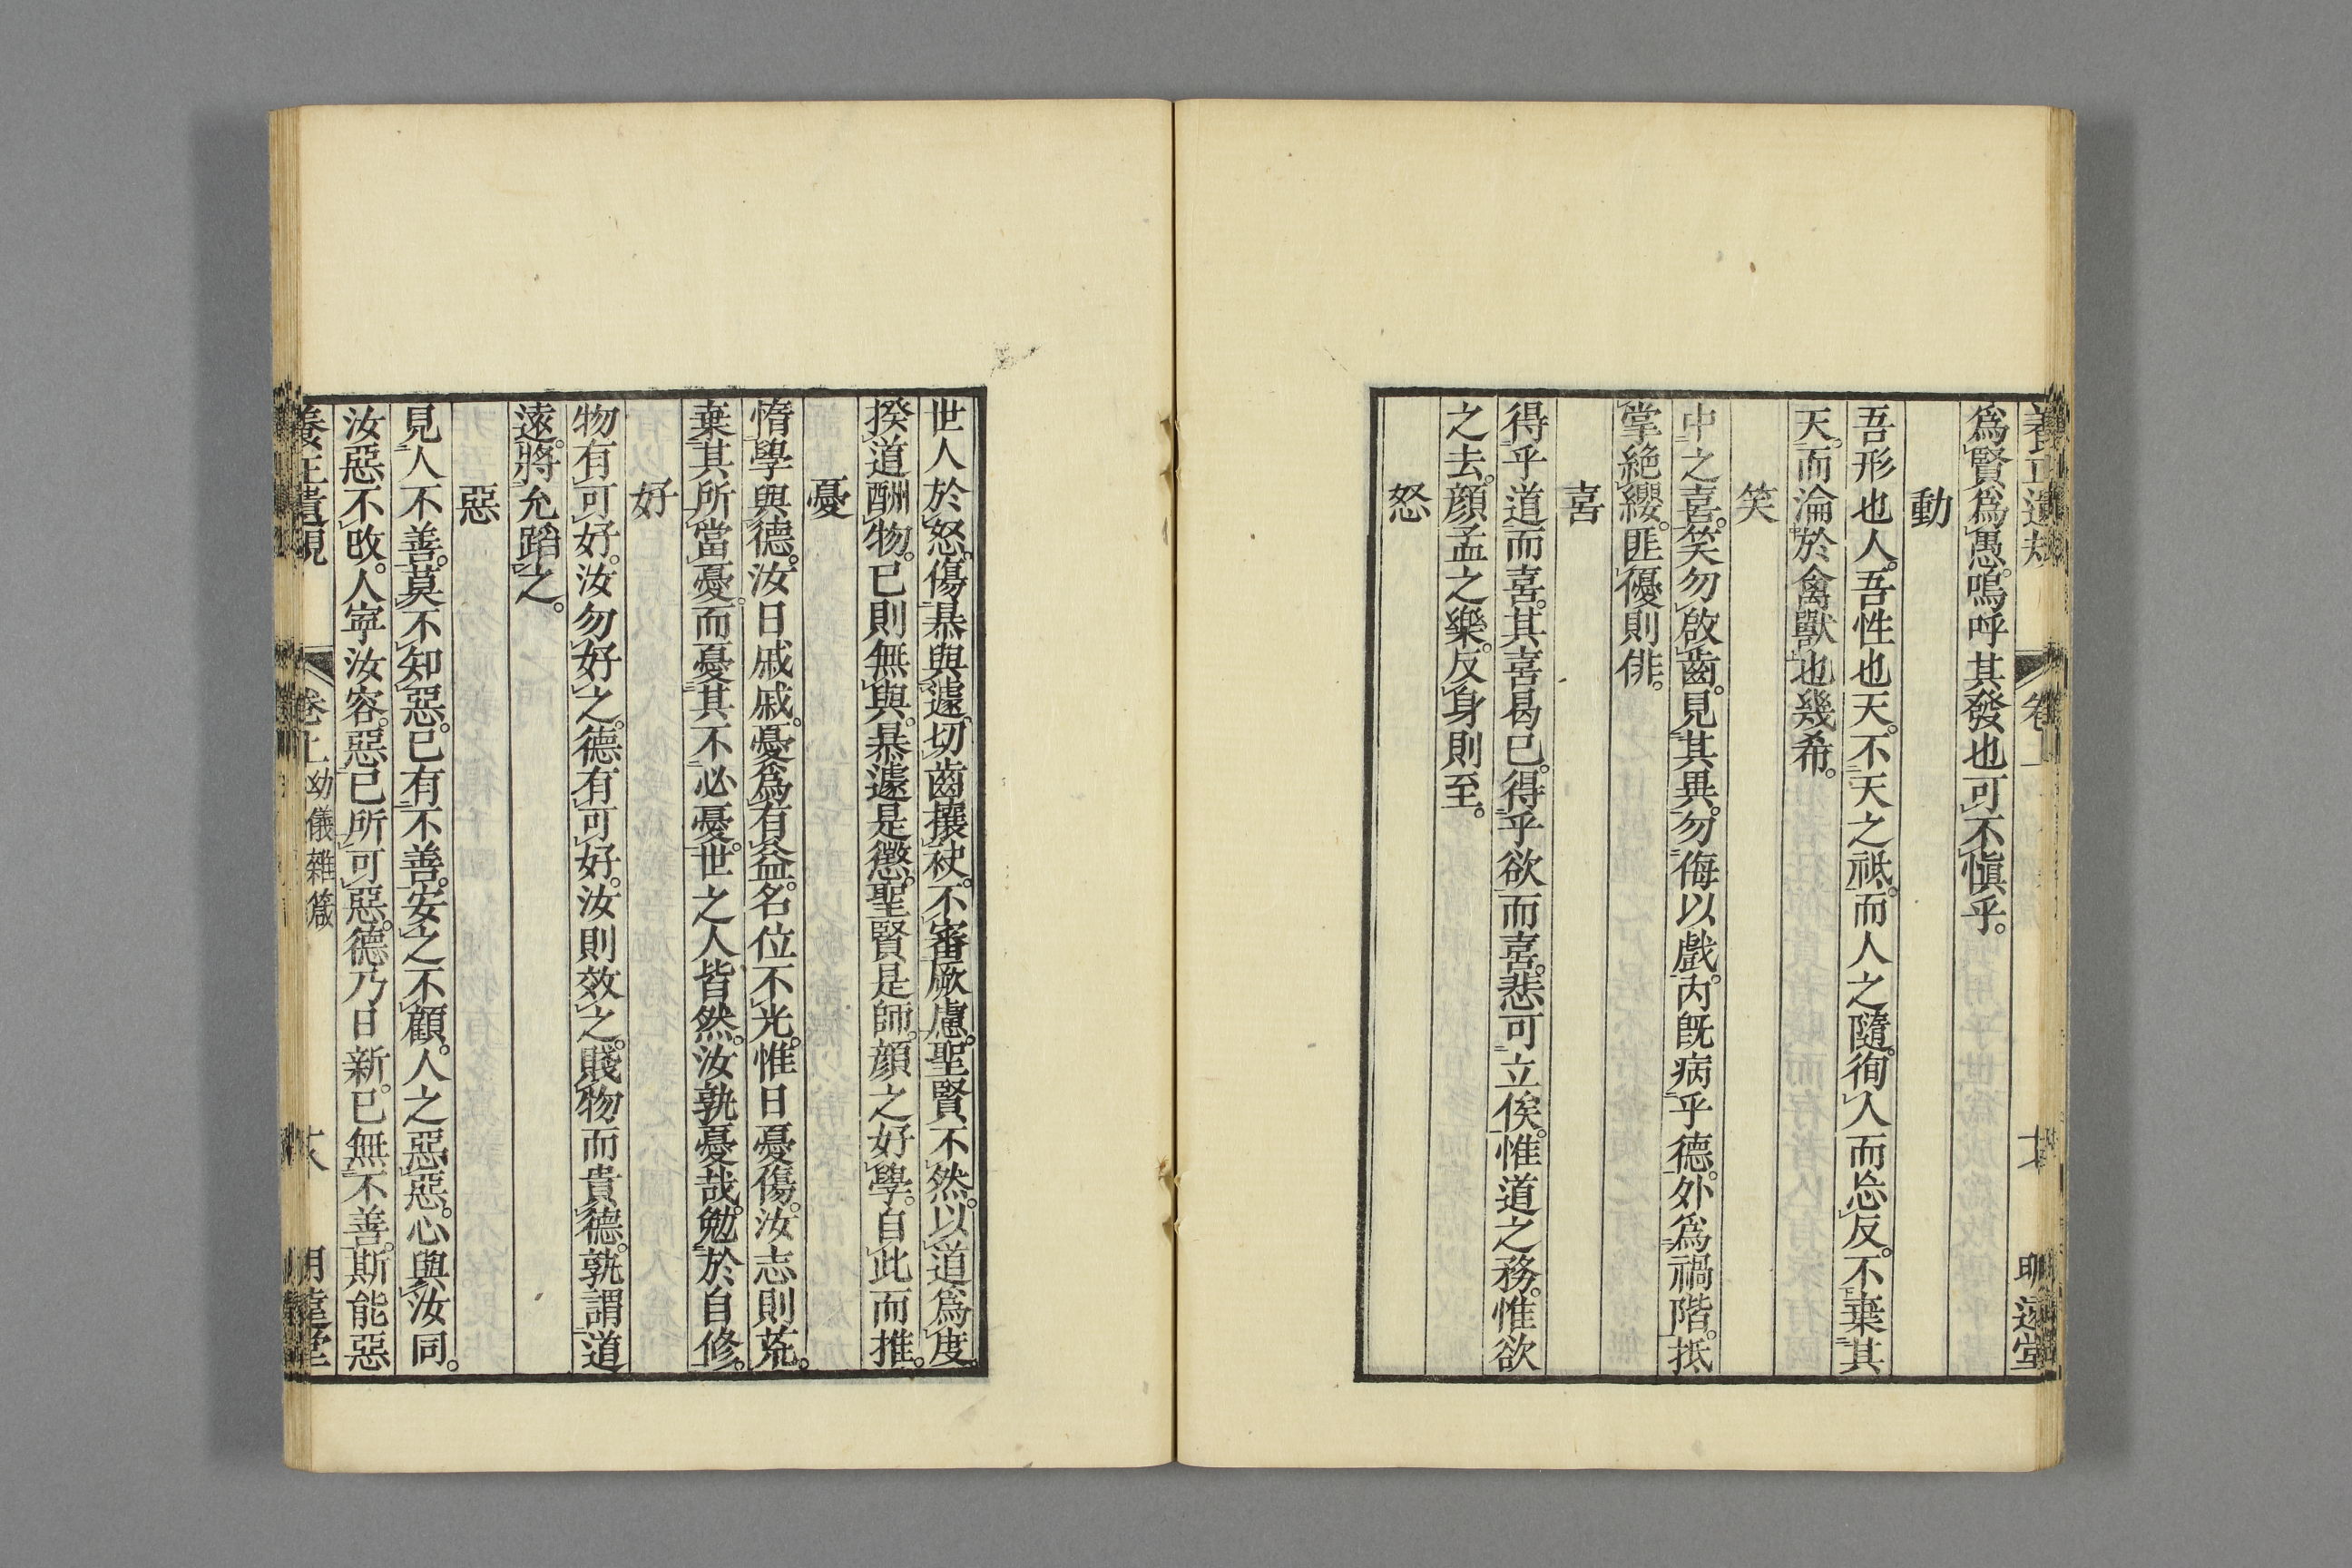 爲賢爲愚。嗚呼其發也可不愼乎。
動
吾形也人。吾性也天。不天之祗。而人之隨。徇人而忘反。不棄其
天。而淪於禽獸也幾希。
笑
中之喜。笑勿啟齒。見其異。勿侮以戲。内既病乎德。外爲禍階。抵
掌絶纓。匪優則俳。
喜
得乎道而喜。其喜曷已。得乎欲而喜。悲可立俟。惟道之務。惟欲
之去。顔孟之樂。反身則至。
怒
世人於怒。傷暴與遽。切齒攘袂。不審厥慮。聖賢不然。以道爲度。
揆道酬物。已則無與。暴遽是懲。聖賢是師。顔之好學。自此而推。
憂
惰學與德。汝日戚戚。憂爲有益。名位不光。惟日憂傷。汝志則荒。
棄其所當憂。而憂其不必憂。世之人皆然。汝孰憂哉。勉於自修。
好
物有可好。汝勿好之。德有可好。汝則效之。賤物而貴德。孰謂道
遠。將允蹈之。
惡
見人不善。莫不知惡。已有不善。安之不顧。人之惡惡。心與汝同。
汝惡不改。人寧汝容。惡已所可惡。德乃日新。已無不善。斯能惡
養正遺規 卷上 幼儀雜箴